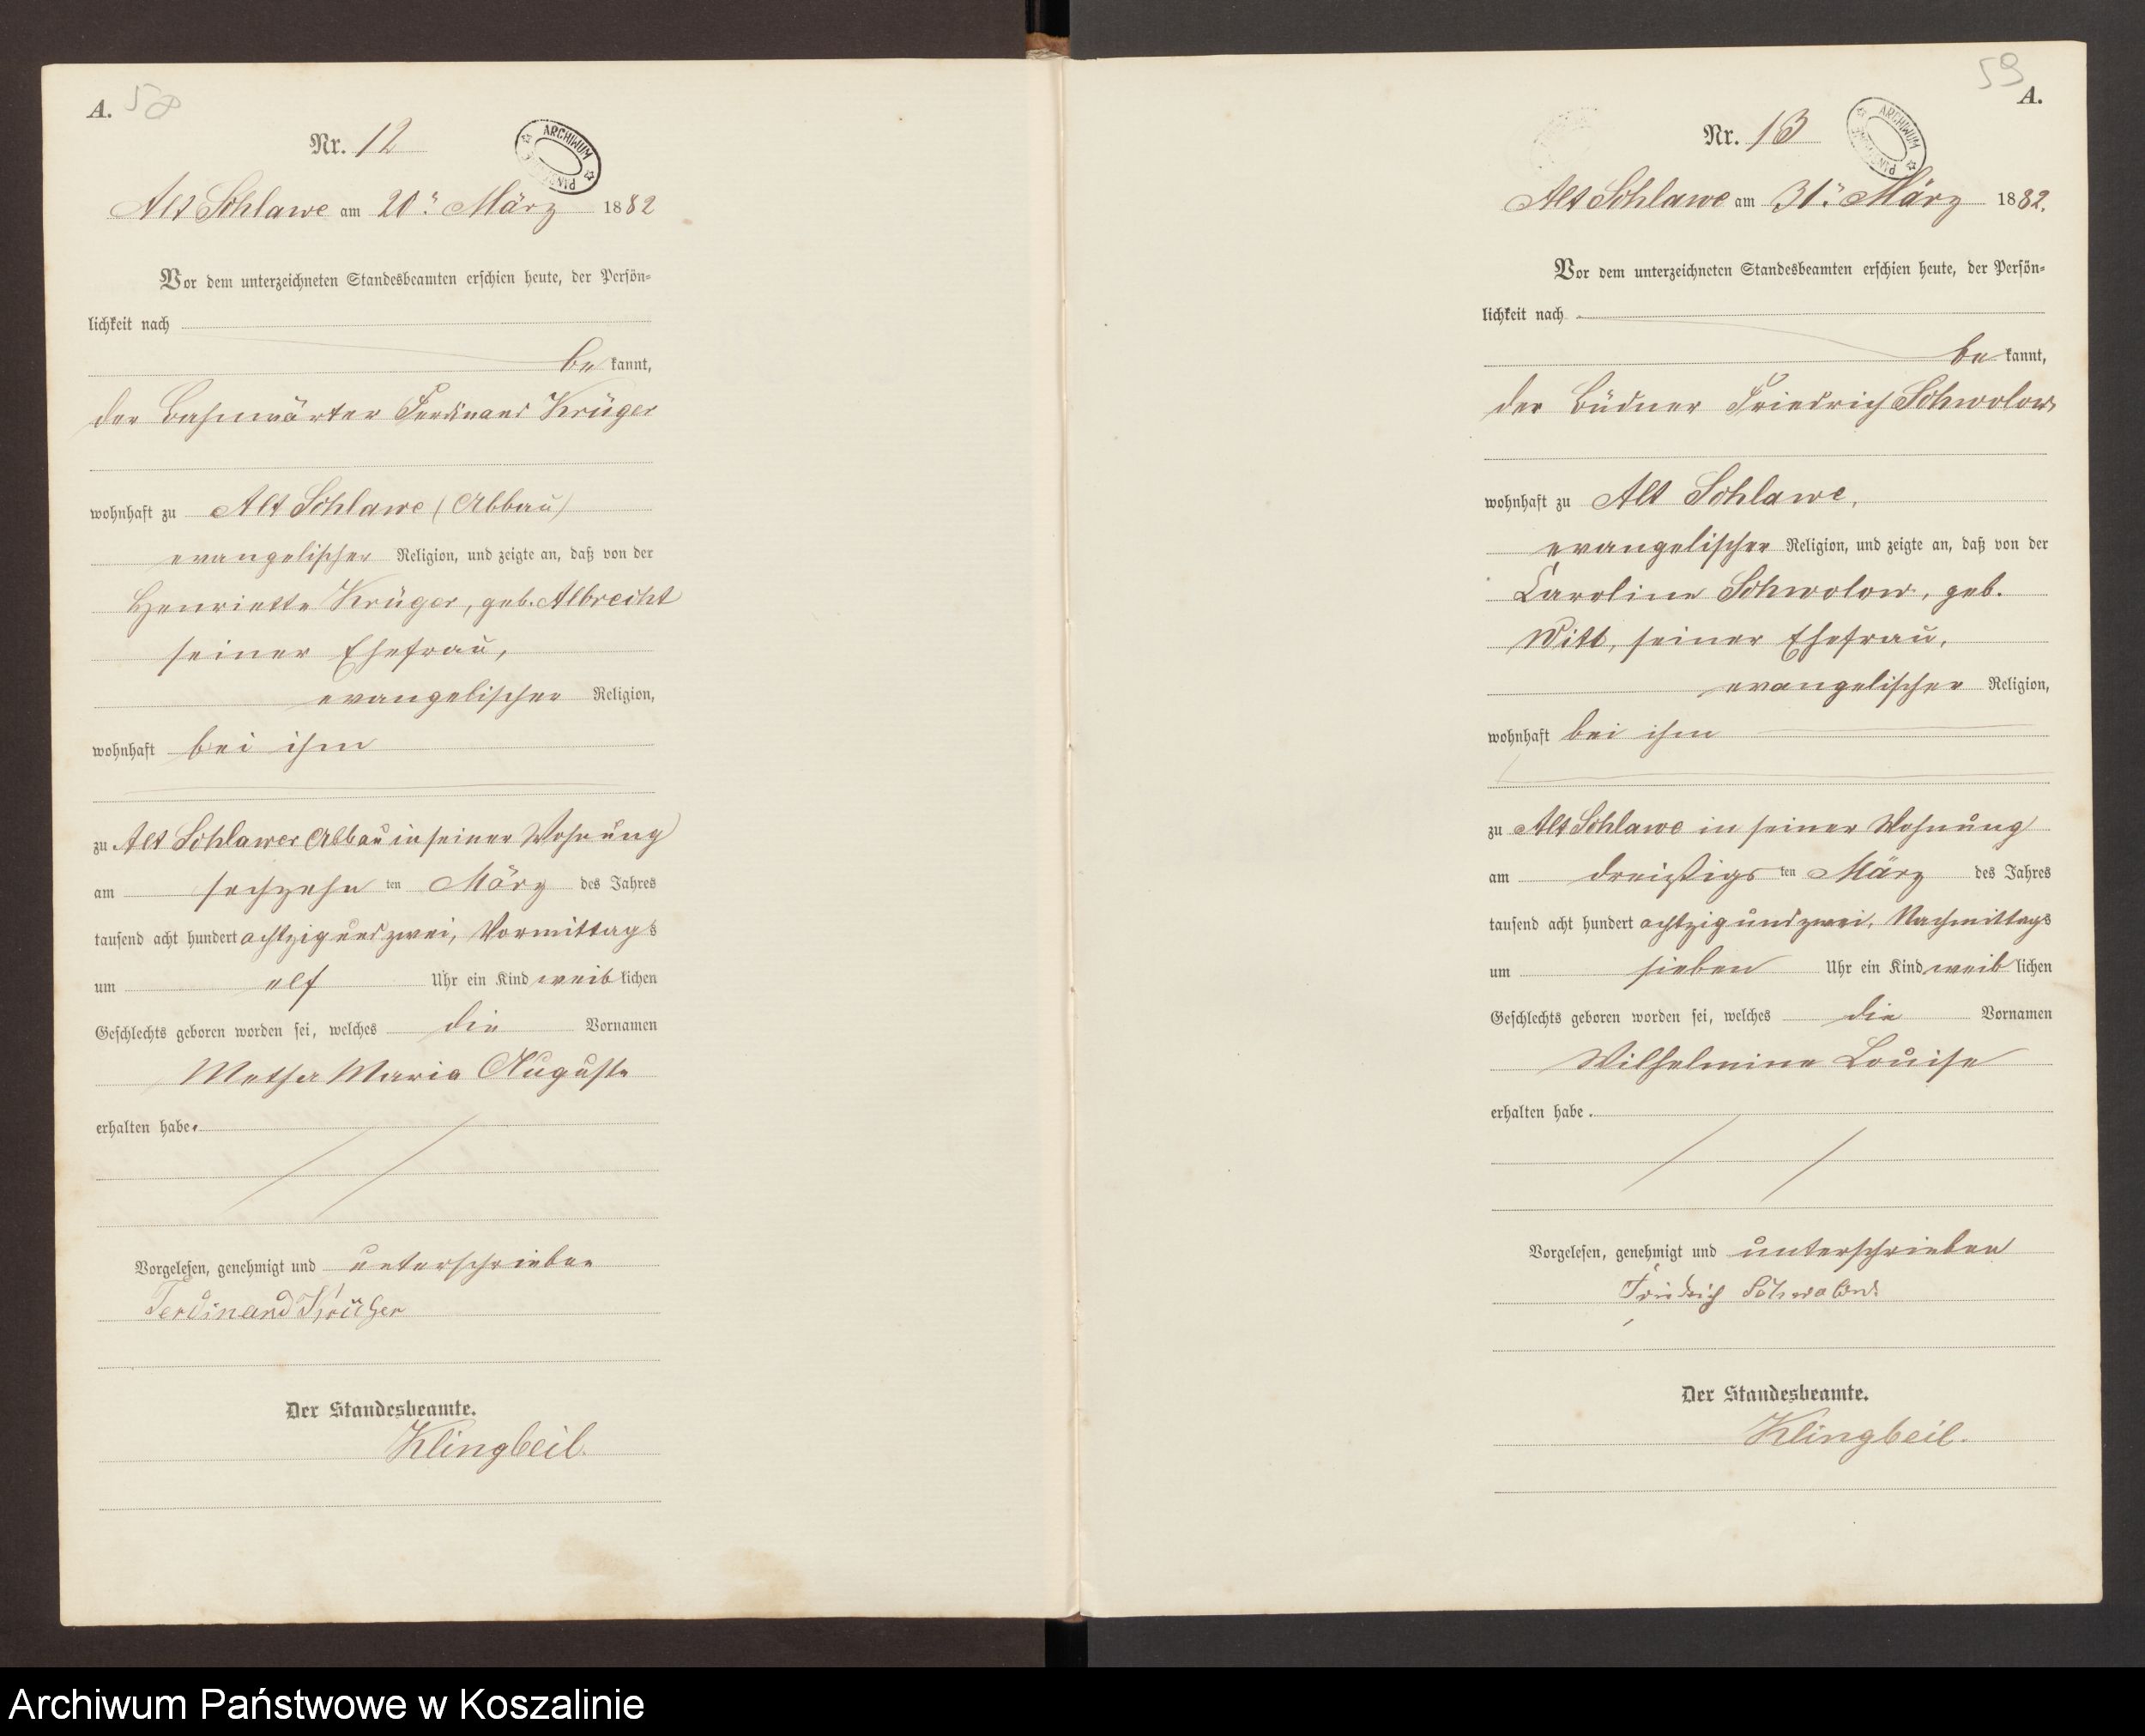 A. 58
Nr. 12
ARCHIWUM
Alt Schlawe am 20ⁿ März 1882
Vor dem unterzeichneten Standesbeamten erschien heute, der Persön-
lichkeit nach
be kannt,
der Bahnwärter Ferdinand Krüger
wohnhaft zu Alt Schlawe (Abbau)
evangelischer Religion, und zeigte an, daß von der
Henriette Krüger, geb. Albrecht
seiner Ehefrau,
evangelischer Religion,
wohnhaft bei ihm
zu Alt Schlawer Abbau in seiner Wohnung
am sechzehn ten März des Jahres
tausend acht hundert achtzig und zwei, Vormittags
um elf Uhr ein Kind weib lichen
Geschlechts geboren worden sei, welches die Vornamen
Metha Maria Auguste
erhalten habe.
Vorgelesen, genehmigt und unterschrieben
Ferdinand Krüger
Der Standesbeamte.
Klingbeil.
59
A.
Nr. 13
ARCHIWUM
Alt Schlawe am 31ⁿ März 1882.
Vor dem unterzeichneten Standesbeamten erschien heute, der Persön-
lichkeit nach
be kannt,
der Büdner Friedrich Schwolow
wohnhaft zu Alt Schlawe,
evangelischer Religion, und zeigte an, daß von der
Caroline Schwolow, geb.
Witt, seiner Ehefrau,
evangelischer Religion,
wohnhaft bei ihm
zu Alt Schlawe in seiner Wohnung
am dreißigs ten März des Jahres
tausend acht hundert achtzig und zwei, Nachmittags
um sieben Uhr ein Kind weib lichen
Geschlechts geboren worden sei, welches die Vornamen
Wilhelmine Louise
erhalten habe.
Vorgelesen, genehmigt und unterschrieben
Friedrich Schwolow
Der Standesbeamte.
Klingbeil.
Archiwum Państwowe w Koszalinie